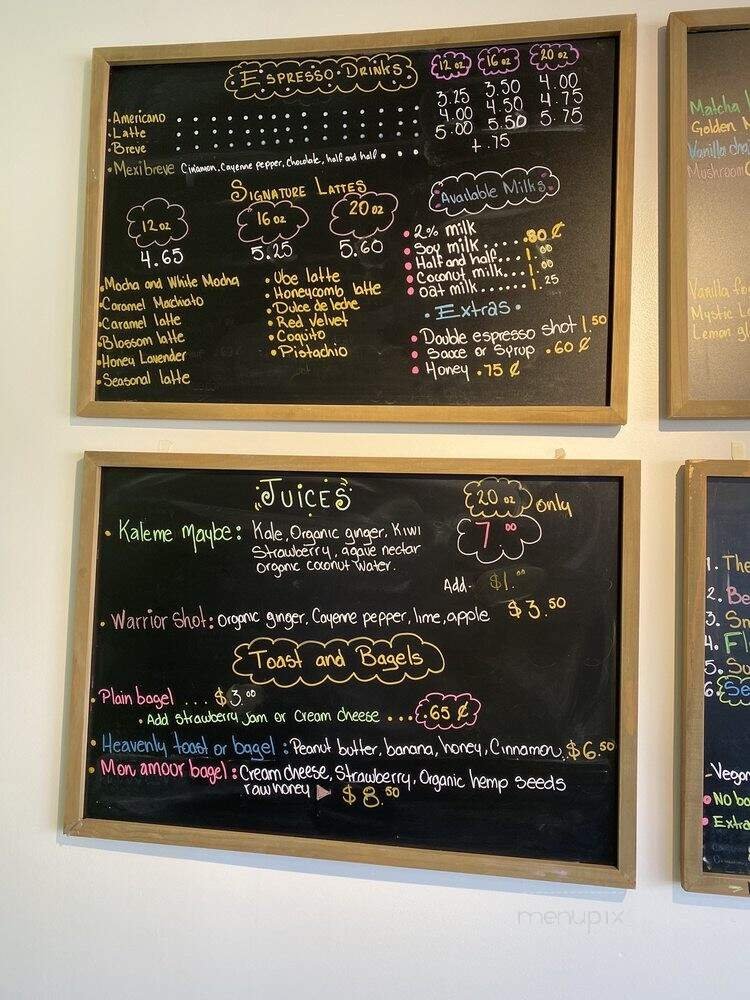 Espresso Drinks
12 oz 16 oz 20 oz
• Americano 3.25 3.50 4.00
• Latte 4.00 4.50 4.75
• Breve 5.00 5.50 5.75
• Mexibreve Cinamon, Cayenne pepper, chocolate, half and half + .75
Signature Lattes
12 oz 16 oz 20 oz
4.65 5.25 5.60
• Mocha and White Mocha
• Caramel Macchiato
• Caramel latte
• Blossom latte
• Honey Lavender
• Seasonal latte
• Ube latte
• Honeycomb latte
• Dulce de leche
• Red Velvet
• Coquito
• Pistachio
Available Milks
• 2% milk
• Soy milk ..... .80 ¢
• Half and half... 1.00
• Coconut milk... 1.00
• Oat milk ...... 1.25
• Extras •
• Double espresso shot 1.50
• Sauce or Syrup .60 ¢
• Honey .75 ¢
Juices
20 oz only
7.00
• Kaleme Maybe: Kale, Organic ginger, Kiwi
Strawberry, agave nectar
organic coconut water.
Add- $1.00
• Warrior Shot: Organic ginger, Cayenne pepper, lime, apple $3.50
Toast and Bagels
• Plain bagel ... $3.00
• Add strawberry jam or Cream cheese ... .65 ¢
• Heavenly toast or bagel: Peanut butter, banana, honey, Cinnamon, $6.50
• Mon amour bagel: Cream cheese, Strawberry, Organic hemp seeds
raw honey $8.50
Matcha
Golden
Vanilla chai
Mushroom
Vanilla
Mystic
Lemon
1. The
2. Be
3. Sm
4. Fl
5. Su
6 Se
- Vegan
• No ba
• Extra
menupix